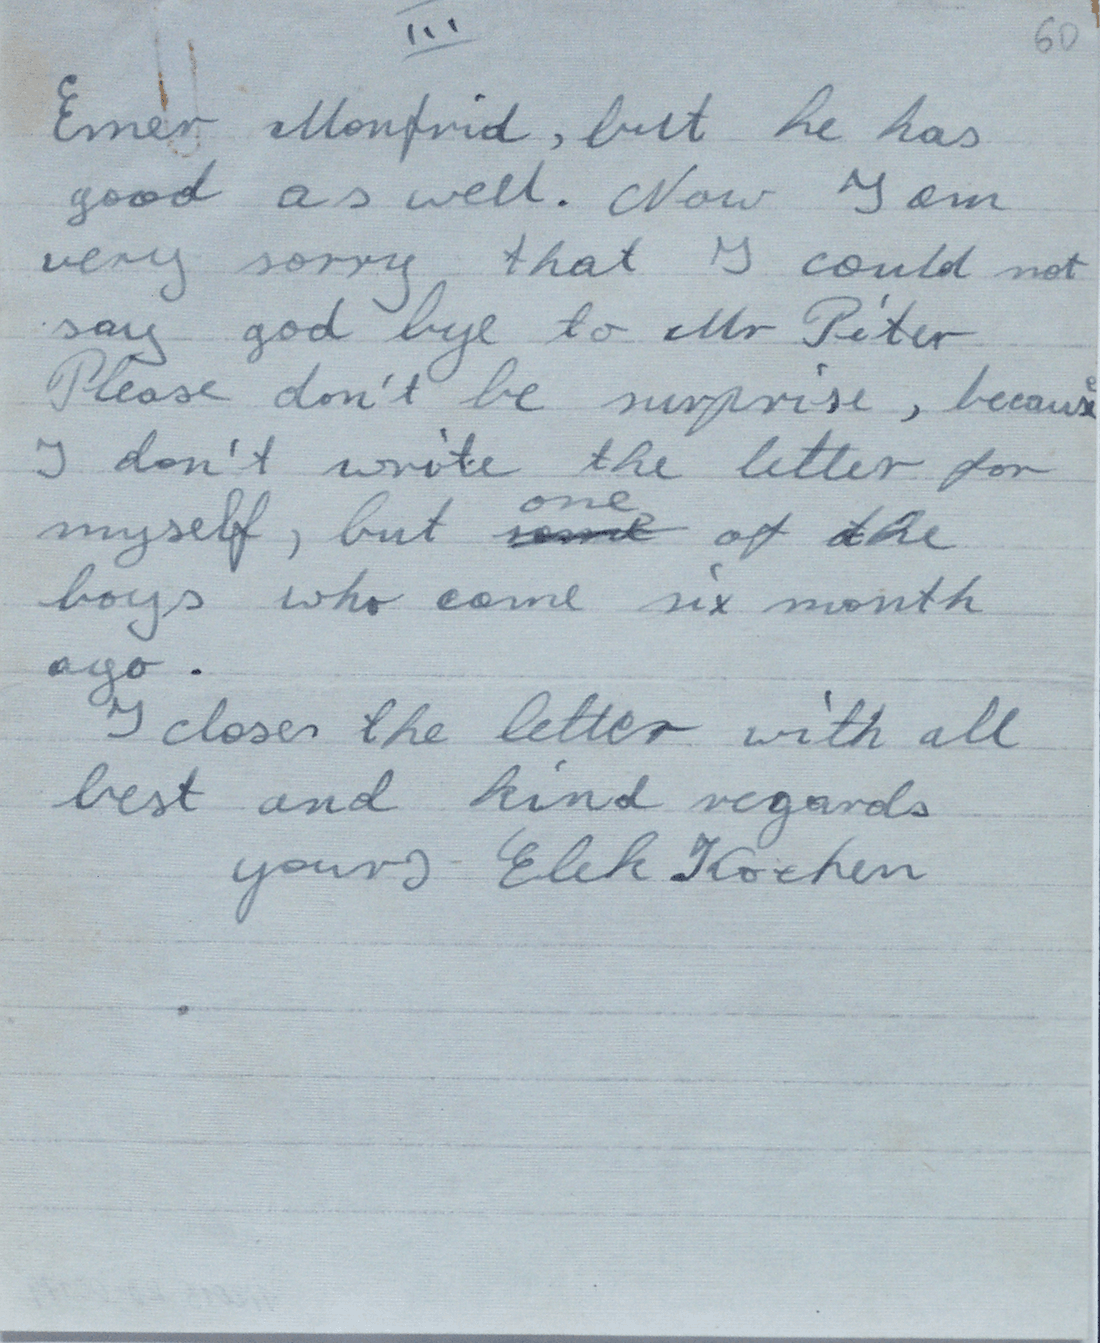 III
60
Emer Monfrid, but he has
good as well. Now I am
very sorry that I could not
say god bye to Mr Péter
Please don't be surprise, because
I don't write the letter for
myself, but one of the
boys who come six month
ago.
I closer the letter with all
best and kind regards
yours Elek Kochen